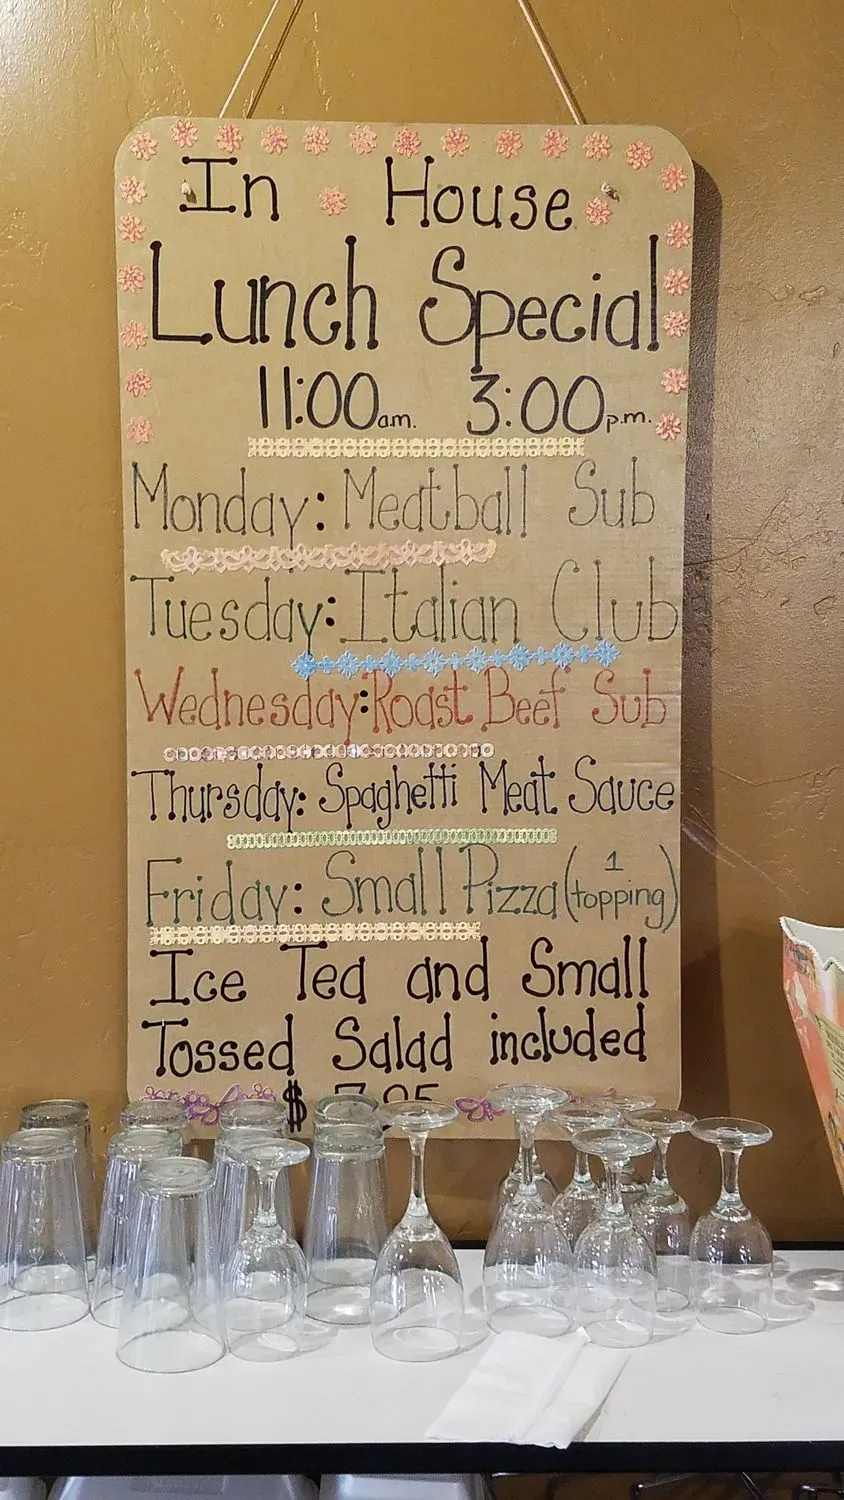 In House
Lunch Special
11:00 a.m. 3:00 p.m.
Monday: Meatball Sub
Tuesday: Italian Club
Wednesday: Roast Beef Sub
Thursday: Spaghetti Meat Sauce
Friday: Small Pizza (1 topping)
Ice Tea and Small
Tossed Salad included
$ 7.95